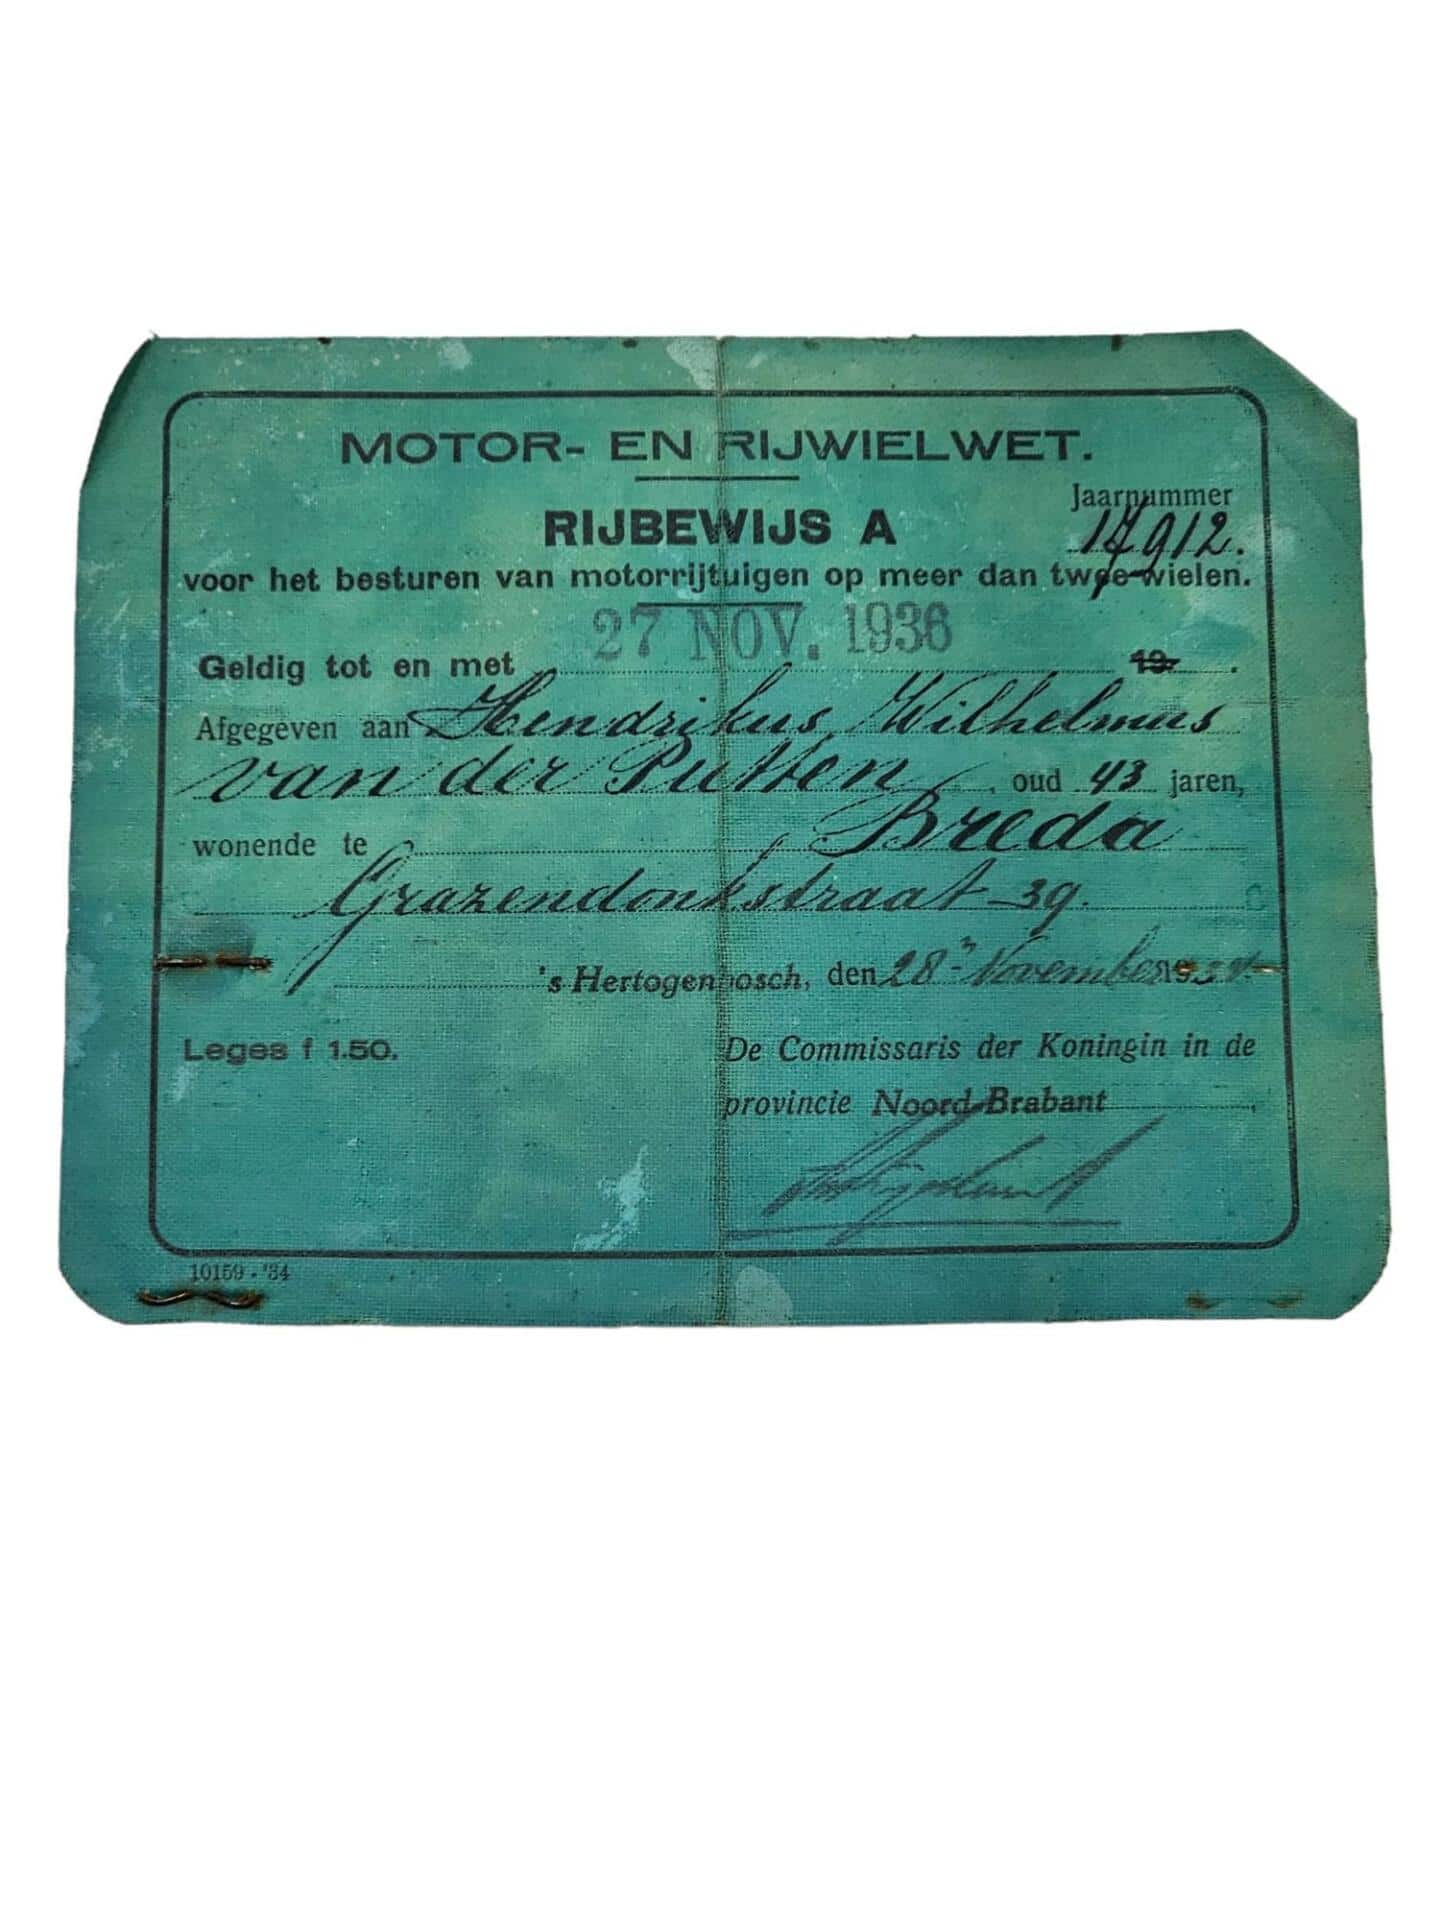 MOTOR- EN RIJWIELWET.
Jaarnummer
RIJBEWIJS A
17912.
voor het besturen van motorrijtuigen op meer dan twee wielen.
27 NOV. 1936
Geldig tot en met 19 .
Afgegeven aan Hendrikus Wilhelmus
van der Putten, oud 43 jaren,
wonende te Breda
Grazendonkstraat 39.
's Hertogenbosch, den 28n November 1934
Leges f 1.50.
De Commissaris der Koningin in de
provincie Noord-Brabant
10159 - '34